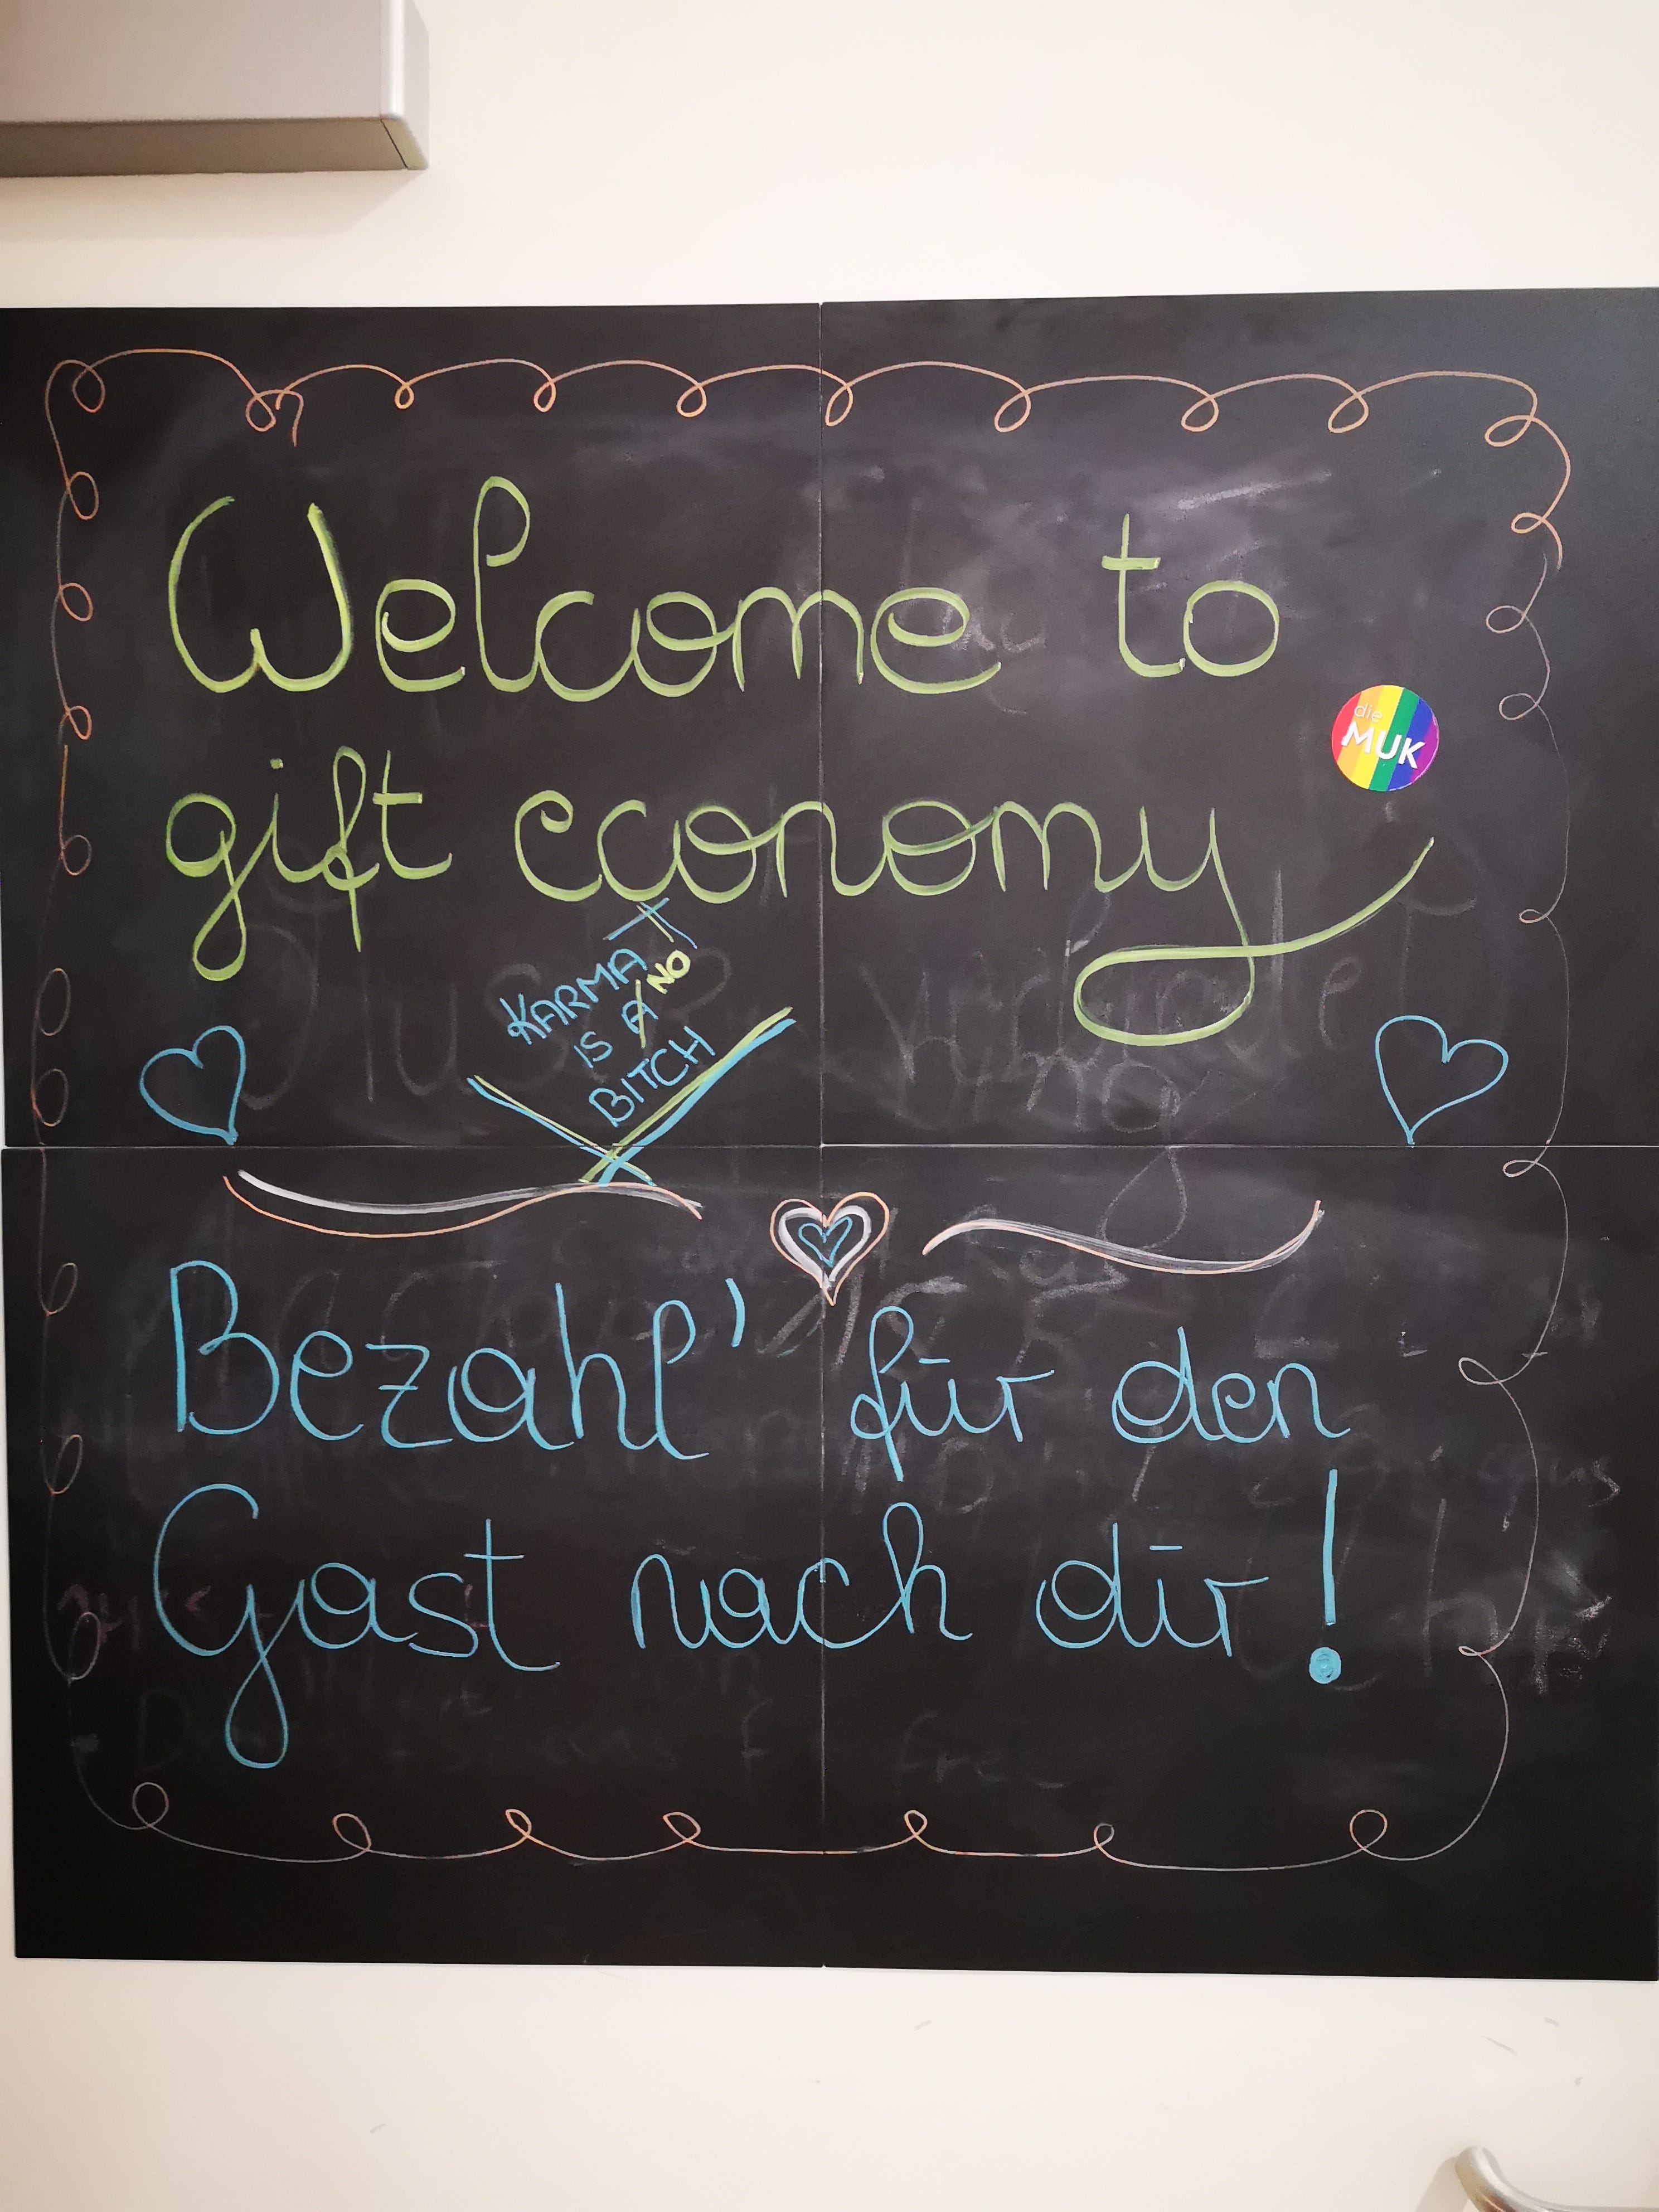 Welcome to
die
MUK
gift economy
KARMA
IS A NO
BITCH
Bezahl' für den
Gast nach dir!